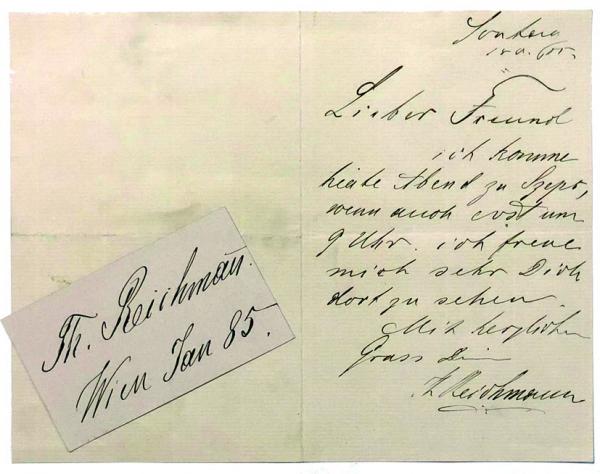 Lieber Freund
ich komme
heute Abend zu Szeps,
wenn auch erst um
9 Uhr. ich freue
mich sehr Dich
dort zu sehen.
Mit herzlichen
Gruss Dein
Th Reichmann
Th. Reichmañ.
Wien Jan 85.